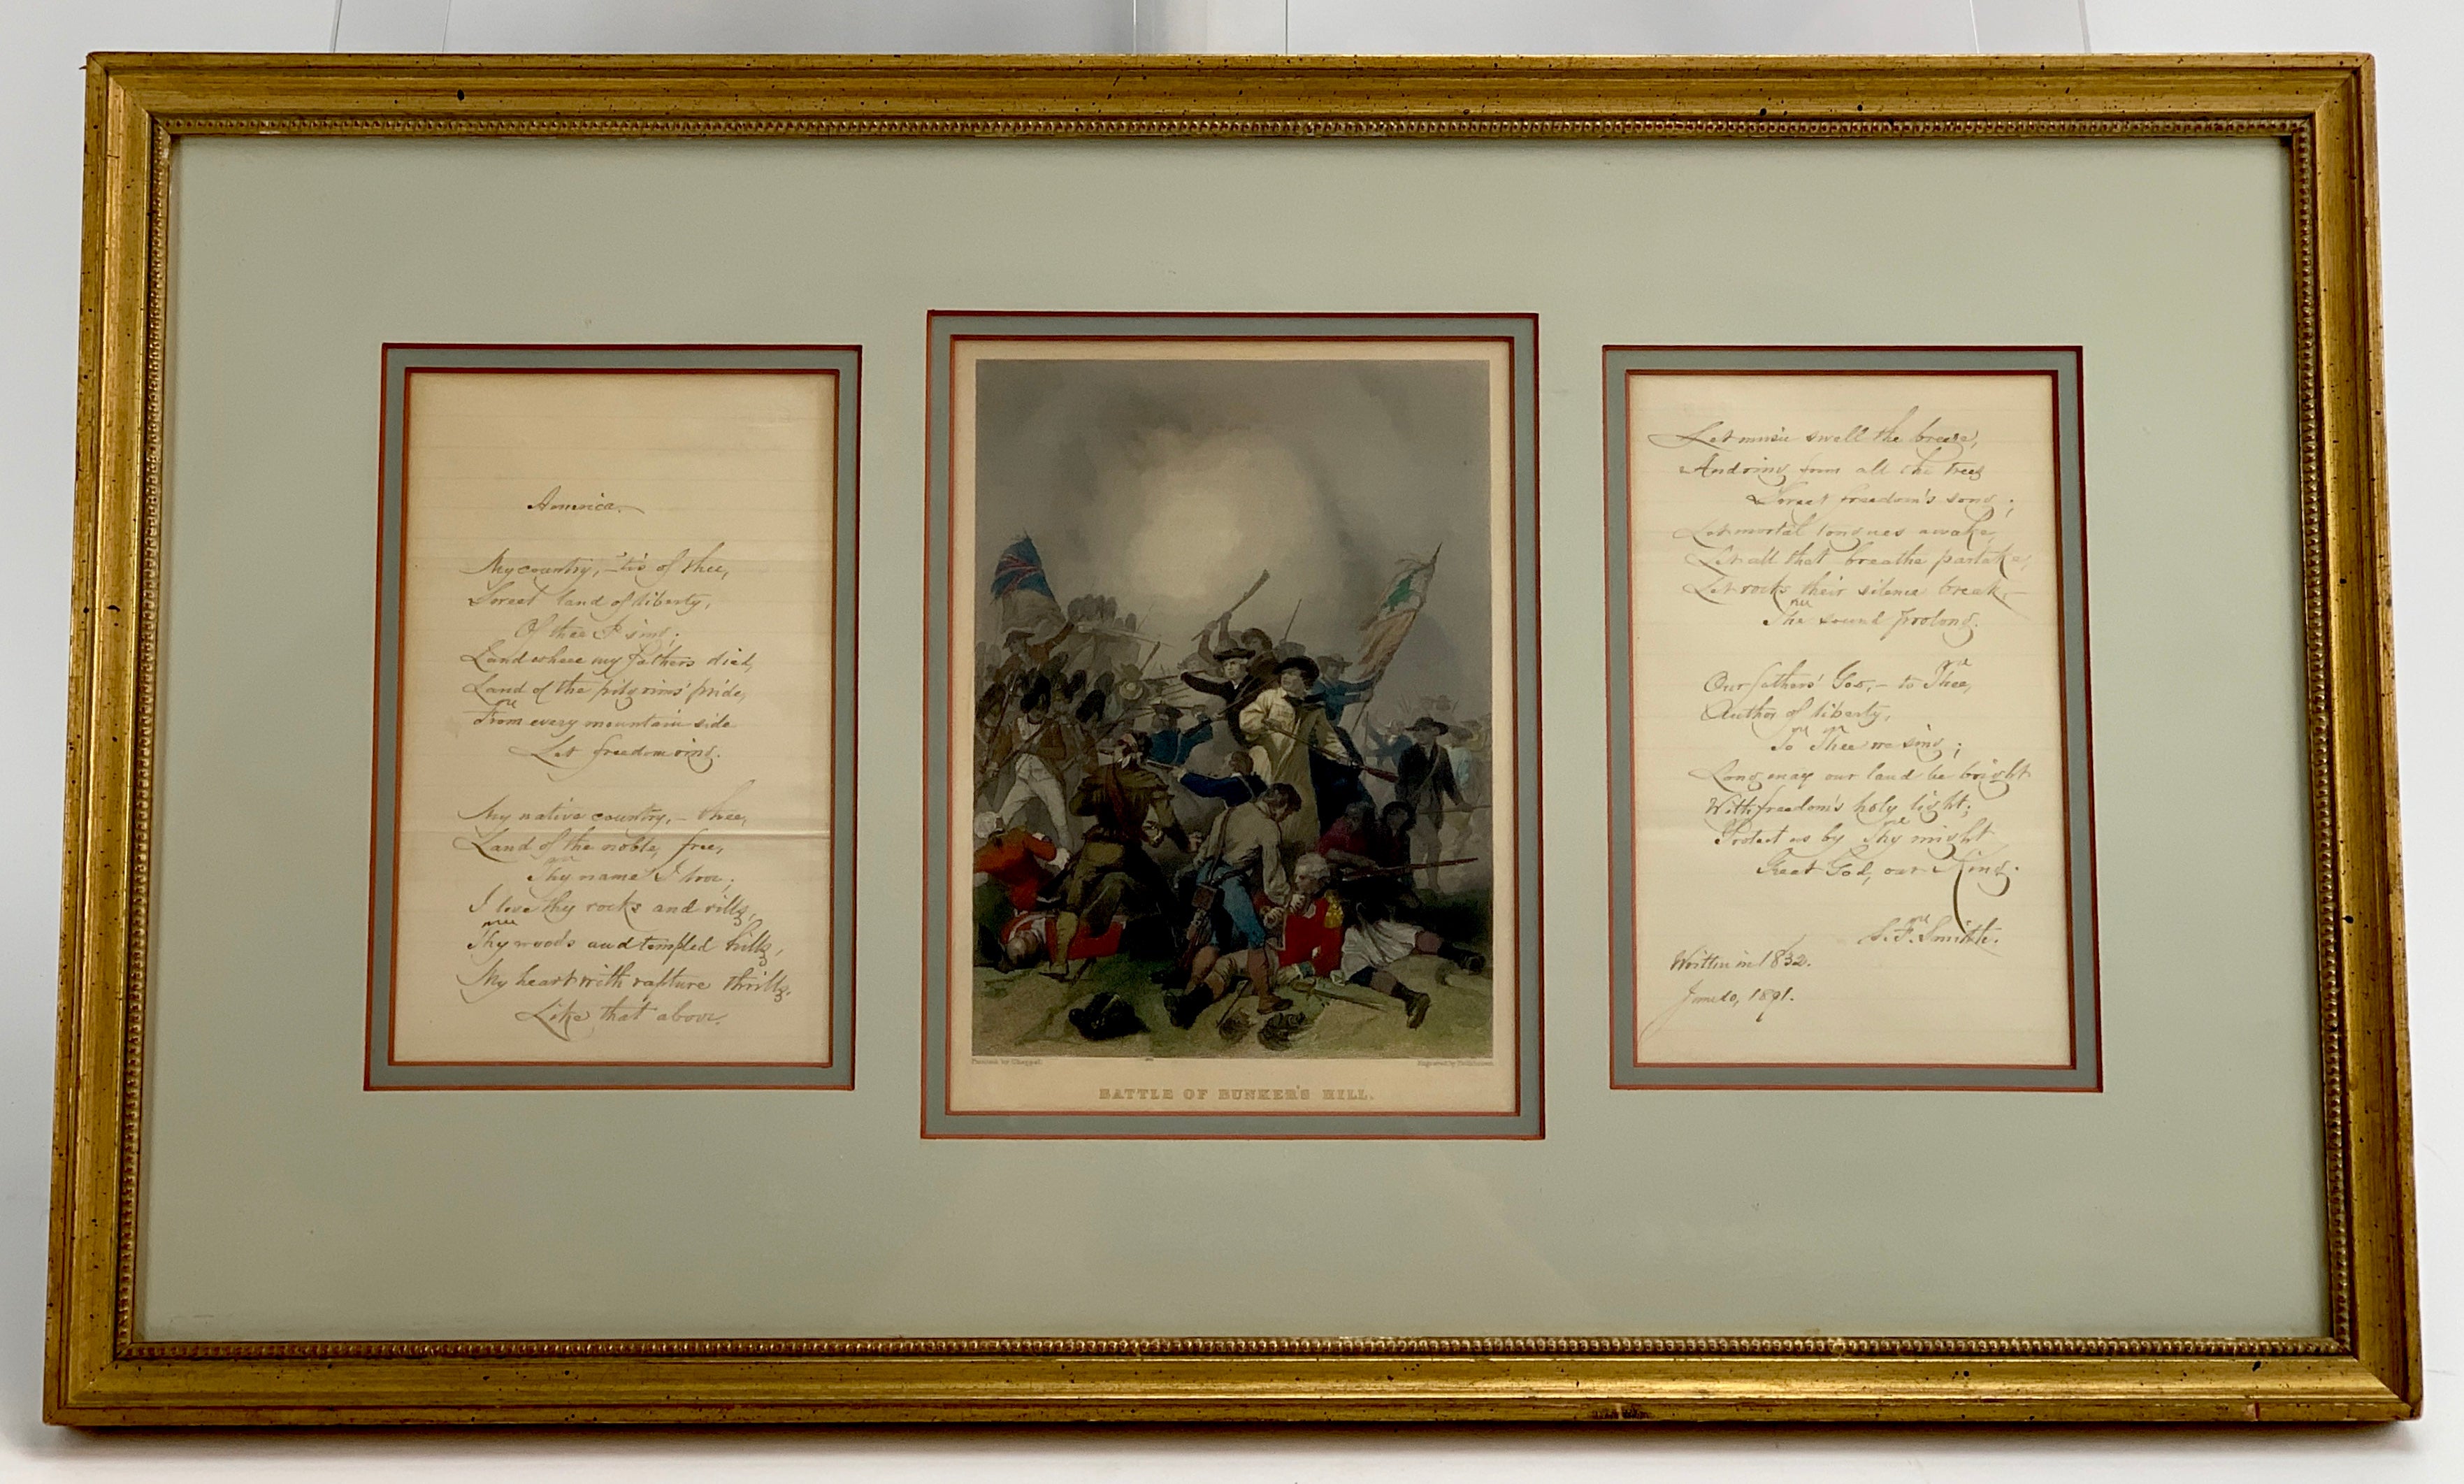 America.
My country, - 'tis of thee,
Sweet land of liberty,
Of thee I sing;
Land where my fathers died,
Land of the pilgrims' pride,
From every mountain side
Let freedom ring.
My native country, - thee,
Land of the noble, free,
Thy name I love;
I love thy rocks and rills,
Thy woods and templed hills,
My heart with rapture thrills,
Like that above.
Painted by Chappel.
Engraved by
BATTLE OF BUNKER'S HILL.
Let music swell the breeze,
And ring from all the trees
Sweet freedom's song;
Let mortal tongues awake,
Let all that breathe partake,
Let rocks their silence break,
The sound prolong.
Our fathers' God, - to Thee,
Author of liberty,
To Thee we sing;
Long may our land be bright
With freedom's holy light;
Protect us by Thy might
Great God, our King.
S. F. Smith.
Written in 1832.
June 10, 1891.